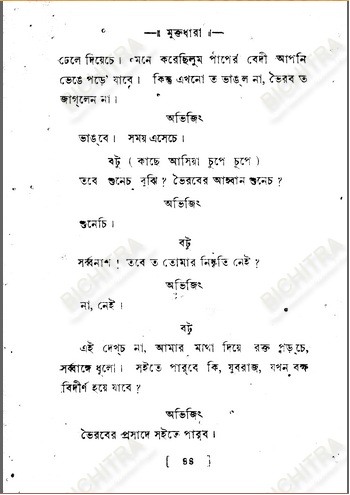 —॥ মুক্তধারা ॥—
ঢেলে দিয়েচে। মনে করেছিলুম পাপের বেদী আপনি
ভেঙে পড়ে' যাবে। কিন্তু এখনো ত ভাঙ্‌ল না, ভৈরব ত
জাগ্‌লেন না।
অভিজিৎ
ভাঙ্‌বে। সময় এসেচে।
বটু ( কাছে আসিয়া চুপে চুপে )
তবে শুনেচ বুঝি? ভৈরবের আহ্বান শুনেচ?
অভিজিৎ
শুনেচি।
বটু
সর্ব্বনাশ! তবে ত তোমার নিষ্কৃতি নেই?
অভিজিৎ
না, নেই।
বটু
এই দেখ্‌চ না, আমার মাথা দিয়ে রক্ত পড়্‌চে,
সর্ব্বাঙ্গে ধূলো। সইতে পার্‌বে কি, যুবরাজ, যখন বক্ষ
বিদীর্ণ হয়ে যাবে?
অভিজিৎ
ভৈরবের প্রসাদে সইতে পার্‌ব।
[ ৪৪ ]
BICHITRA